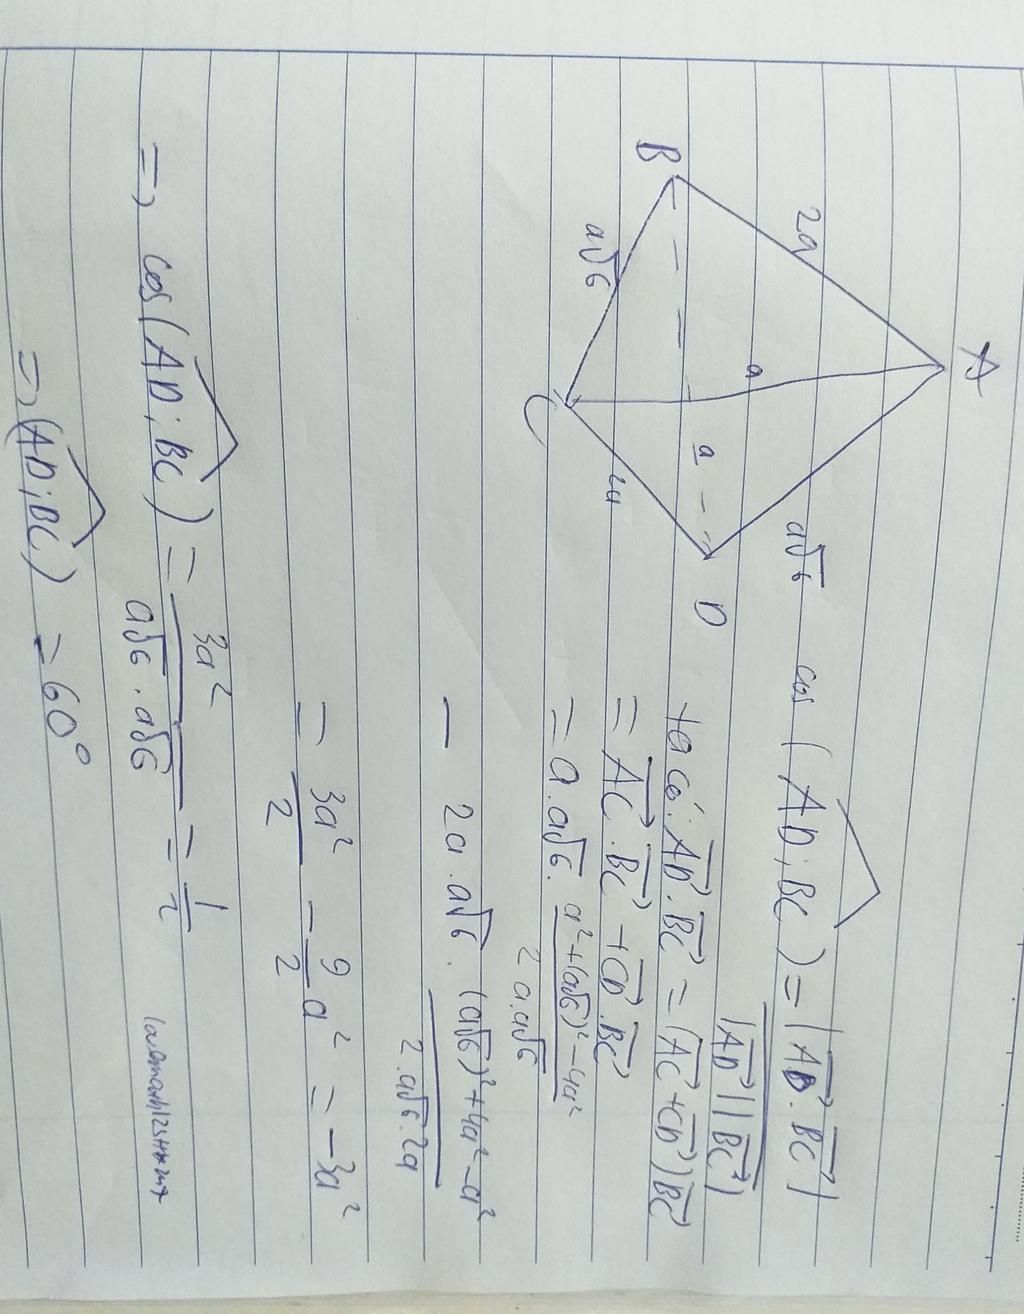 A
2a
a
a√6
B
a
D
a√6
2a
C
cos (AD; BC) = |AD⃗.BC⃗| / |AD⃗||BC⃗|
ta có: AD⃗.BC⃗ = (AC⃗ + CD⃗)BC⃗
= AC⃗.BC⃗ + CD⃗.BC⃗
= a.a√6. a² + (a√6)² - 4a² / 2a.a√6
- 2a.a√6. (a√6)² + 4a² - a² / 2.a√6.2a
= 3a²/2 - 9/2 a² = -3a²
=> cos(AD; BC) = 3a² / a√6.a√6 = 1/2
=> (AD; BC) = 60°